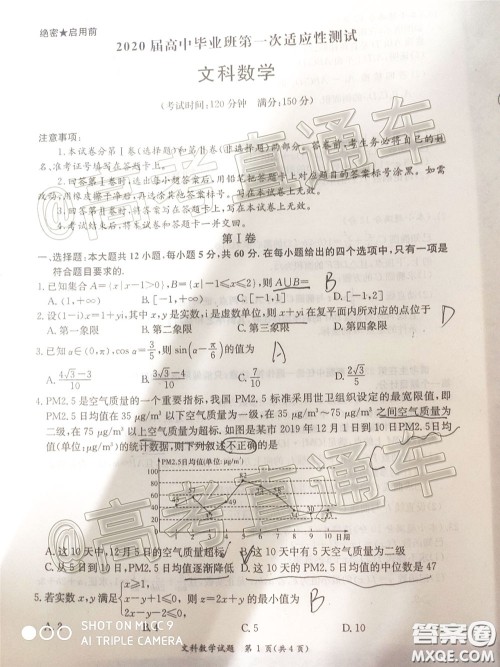 绝密★启用前
2020届高中毕业班第一次适应性测试
文科数学
(考试时间:120分钟 满分:150分)
注意事项:
1.本试卷分第Ⅰ卷(选择题)和第Ⅱ卷(非选择题)两部分。答卷前,考生务必将自己的姓
名、准考证号填写在答题卡上。
2.回答第Ⅰ卷时,选出每小题答案后,用铅笔把答题卡上对应题目的答案标号涂黑。如需
改动,用橡皮擦干净后,再选涂其他答案标号,写在本试卷上无效。
3.回答第Ⅱ卷时,将答案写在答题卡上,写在本试卷上无效。
4.考试结束后,将本试卷和答题卡一并交回。
第Ⅰ卷
一、选择题:本大题共12小题,每小题5分,共60分.在每小题给出的四个选项中,只有一项是
符合题目要求的.
1.已知集合A={x|x-1>0},B={x|-1≤x≤2},则A∪B= B
A.(1,+∞) B.[-1,+∞) C.[-1,1] D.[-1,2]
2.设(1-i)x=1+yi,其中x,y是实数,i是虚数单位,则x+yi在复平面内所对应的点位于 D
A.第一象限 B.第二象限 C.第三象限 D.第四象限
3.已知α∈(0,π),cosα=3/5,则sin(α-π/6)的值为 A
A.(4√3-3)/10 C.7/10 D.2√3/5
4.PM2.5是空气质量的一个重要指标,我国PM2.5标准采用世卫组织设定的最宽限值,即
PM2.5日均值在35 μg/m³以下空气质量为一级,在35 μg/m³~75 μg/m³之间空气质量为
二级,在75 μg/m³以上空气质量为超标.如图是某市2019年12月1日到10日PM2.5日均
值(单位:μg/m³)的统计数据,则下列叙述不正确的是 C
PM2.5日均值(单位:μg/m³)
1 2 3 4 5 6 7 8 9 10 日期
A.这10天中,12月5日的空气质量超标 B.这10天中有5天空气质量为二级
C.从5日到10日,PM2.5日均值逐渐降低 D.这10天的PM2.5日均值的中位数是47
5.若实数x,y满足{x≥1, x-y+1≤0, 2x-y-2≤0,则z=2x+y的最小值为 B
B.4 C.5 D.10
文科数学试题 第1页(共4页)
SHOT ON MI CC9
AI TRIPLE CAMERA
@高考直通车
@高考直通车
答案圈
MXQE.COM